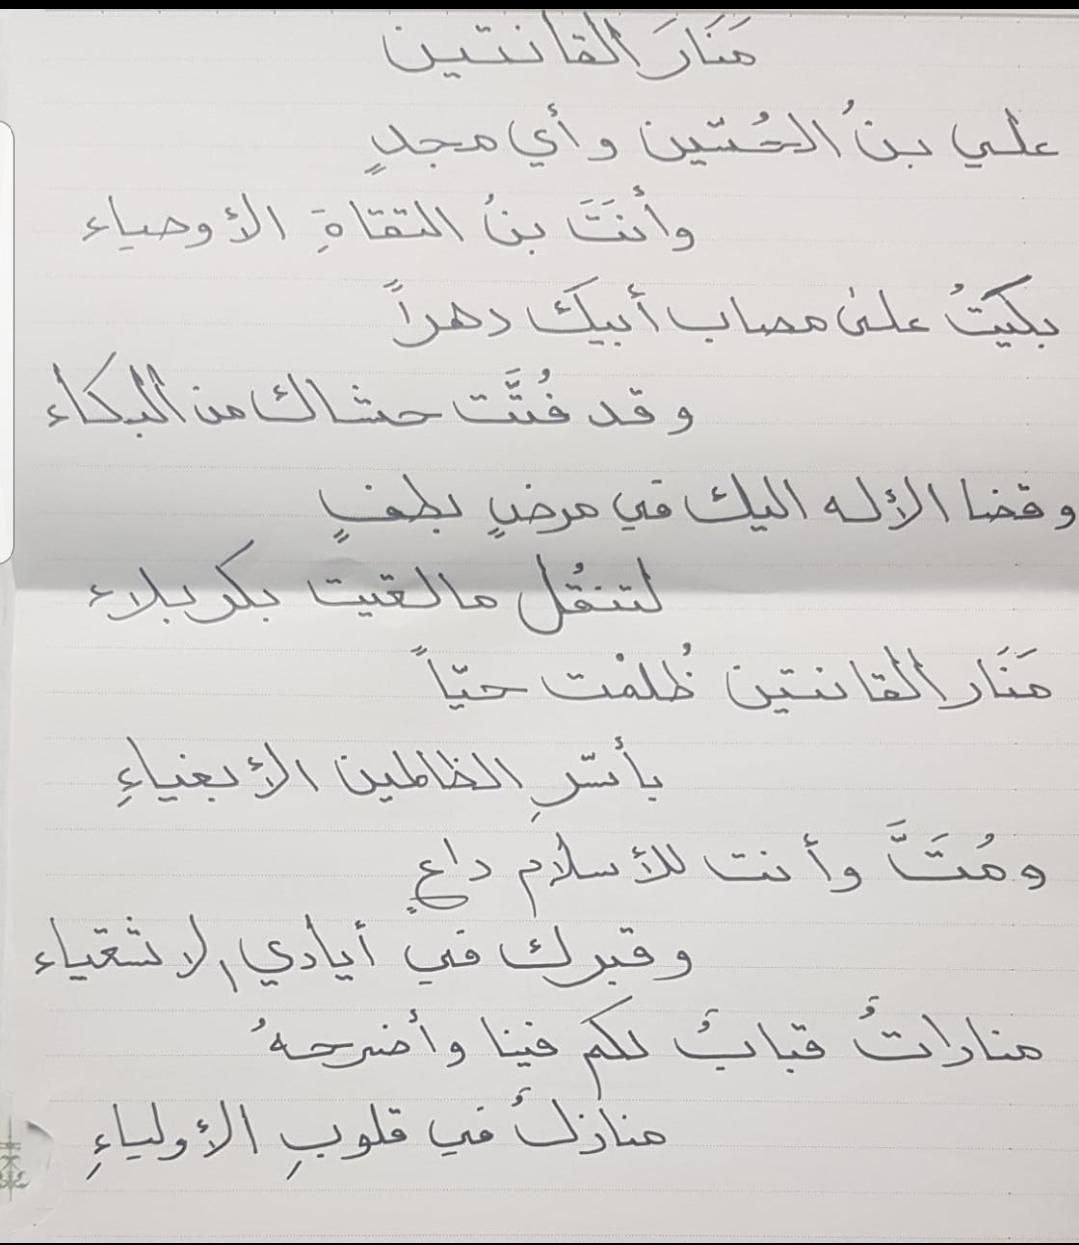 مَنَارَ القانتين
علي بنُ الحُسَين وأي مجدٍ
وأنتَ بنُ التقاةِ الأوصياء
بكيتُ على مصاب أبيك دهراً
وقد فُتَّت حشاك من البكاء
وقضا الأله اليك في مرضٍ بطفٍ
لتنقُل مالقيت بكربلاء
مَنَار القانتين ظُلمْت حيّاً
بأسرِ الظالمين الأبغياءِ
ومُتَّ وأنت للأسلام داعٍ
وقبرك في أيادي الاشقياء
مناراتٌ قبابٌ لكم فينا وأضرحهُ
منازلٌ في قلوبِ الأولياءِ